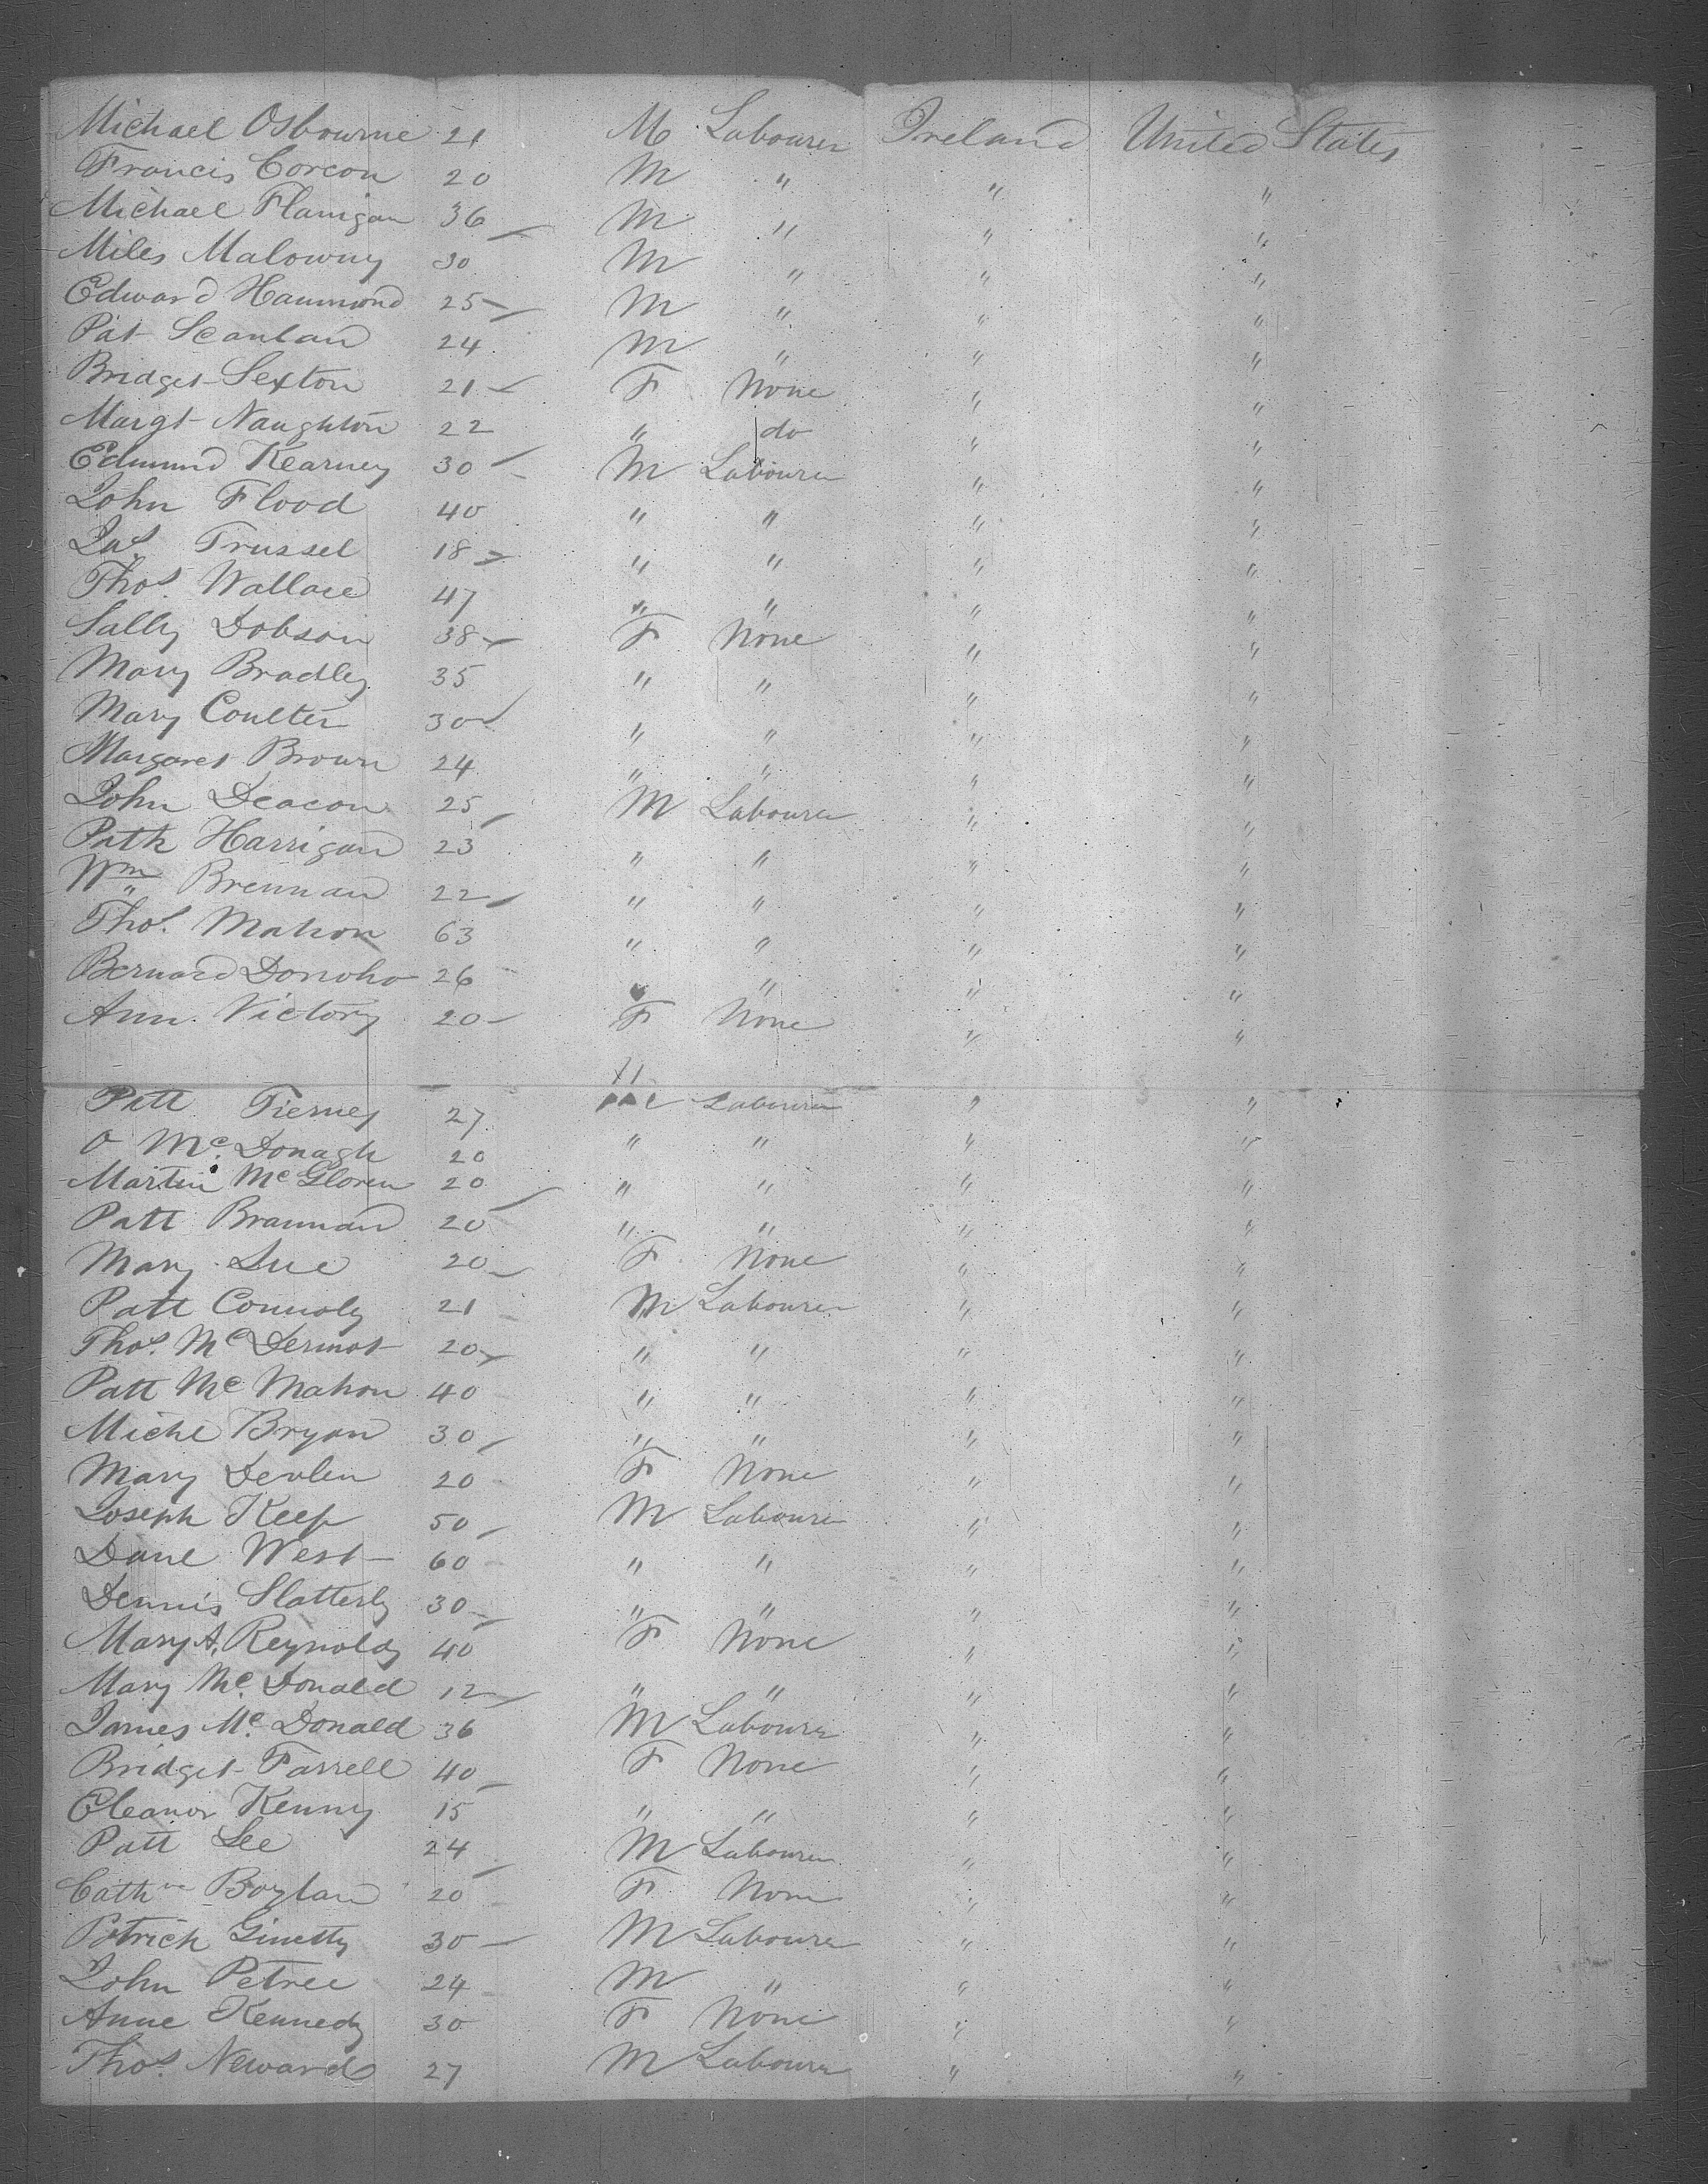 Michael Osbourne 21 M Labourer Ireland United States
Francis Corcon 20 M " " "
Michael Flanigan 36 M " " "
Miles Malowny 30 M " " "
Edward Hammond 25 M " " "
Pat Scanlan 24 M " " "
Bridget Sexton 21 F None " "
Margt Naughton 22 " do " "
Edmund Kearney 30 M Labourer " "
John Flood 40 " " " "
Jas Trussel 18 " " " "
Thos. Wallace 47 " " " "
Sally Dobson 38 F None " "
Mary Bradley 35 " " " "
Mary Coulter 30 " " " "
Margaret Brown 24 " " " "
John Deacon 25 M Labourer " "
Patk Harrigan 23 " " " "
Wm Brennan 22 " " " "
Thos. Mahon 63 " " " "
Bernard Donoho 26 " " "
Ann Victory 20 F None " "
Patt Tierney 27 Labourer " "
O McDonagh 20 " " " "
Martin McGloren 20 " " " "
Patt Brannan 20 " " " "
Mary Lue 20 F None " "
Patt Connoly 21 M Labourer " "
Thos. McDermot 20 " " " "
Patt McMahon 40 " " " "
Michl Bryan 30 " " " "
Mary Devlen 20 F None " "
Joseph Keep 50 M Labourer " "
Danl West 60 " " " "
Dennis Slatterly 30 " " " "
Mary A. Reynolds 40 F None " "
Mary McDonald 12 " " " "
James McDonald 36 M Labourer " "
Bridget Farrell 40 F None " "
Eleanor Kenny 15 " " " "
Patt Lee 24 M Labourer " "
Cathne Boylan 20 F None " "
Patrick Ginetty 30 M Labourer " "
John Petree 24 M " " "
Anne Kennedy 30 F None " "
Thos. Neward 27 M Labourer " "